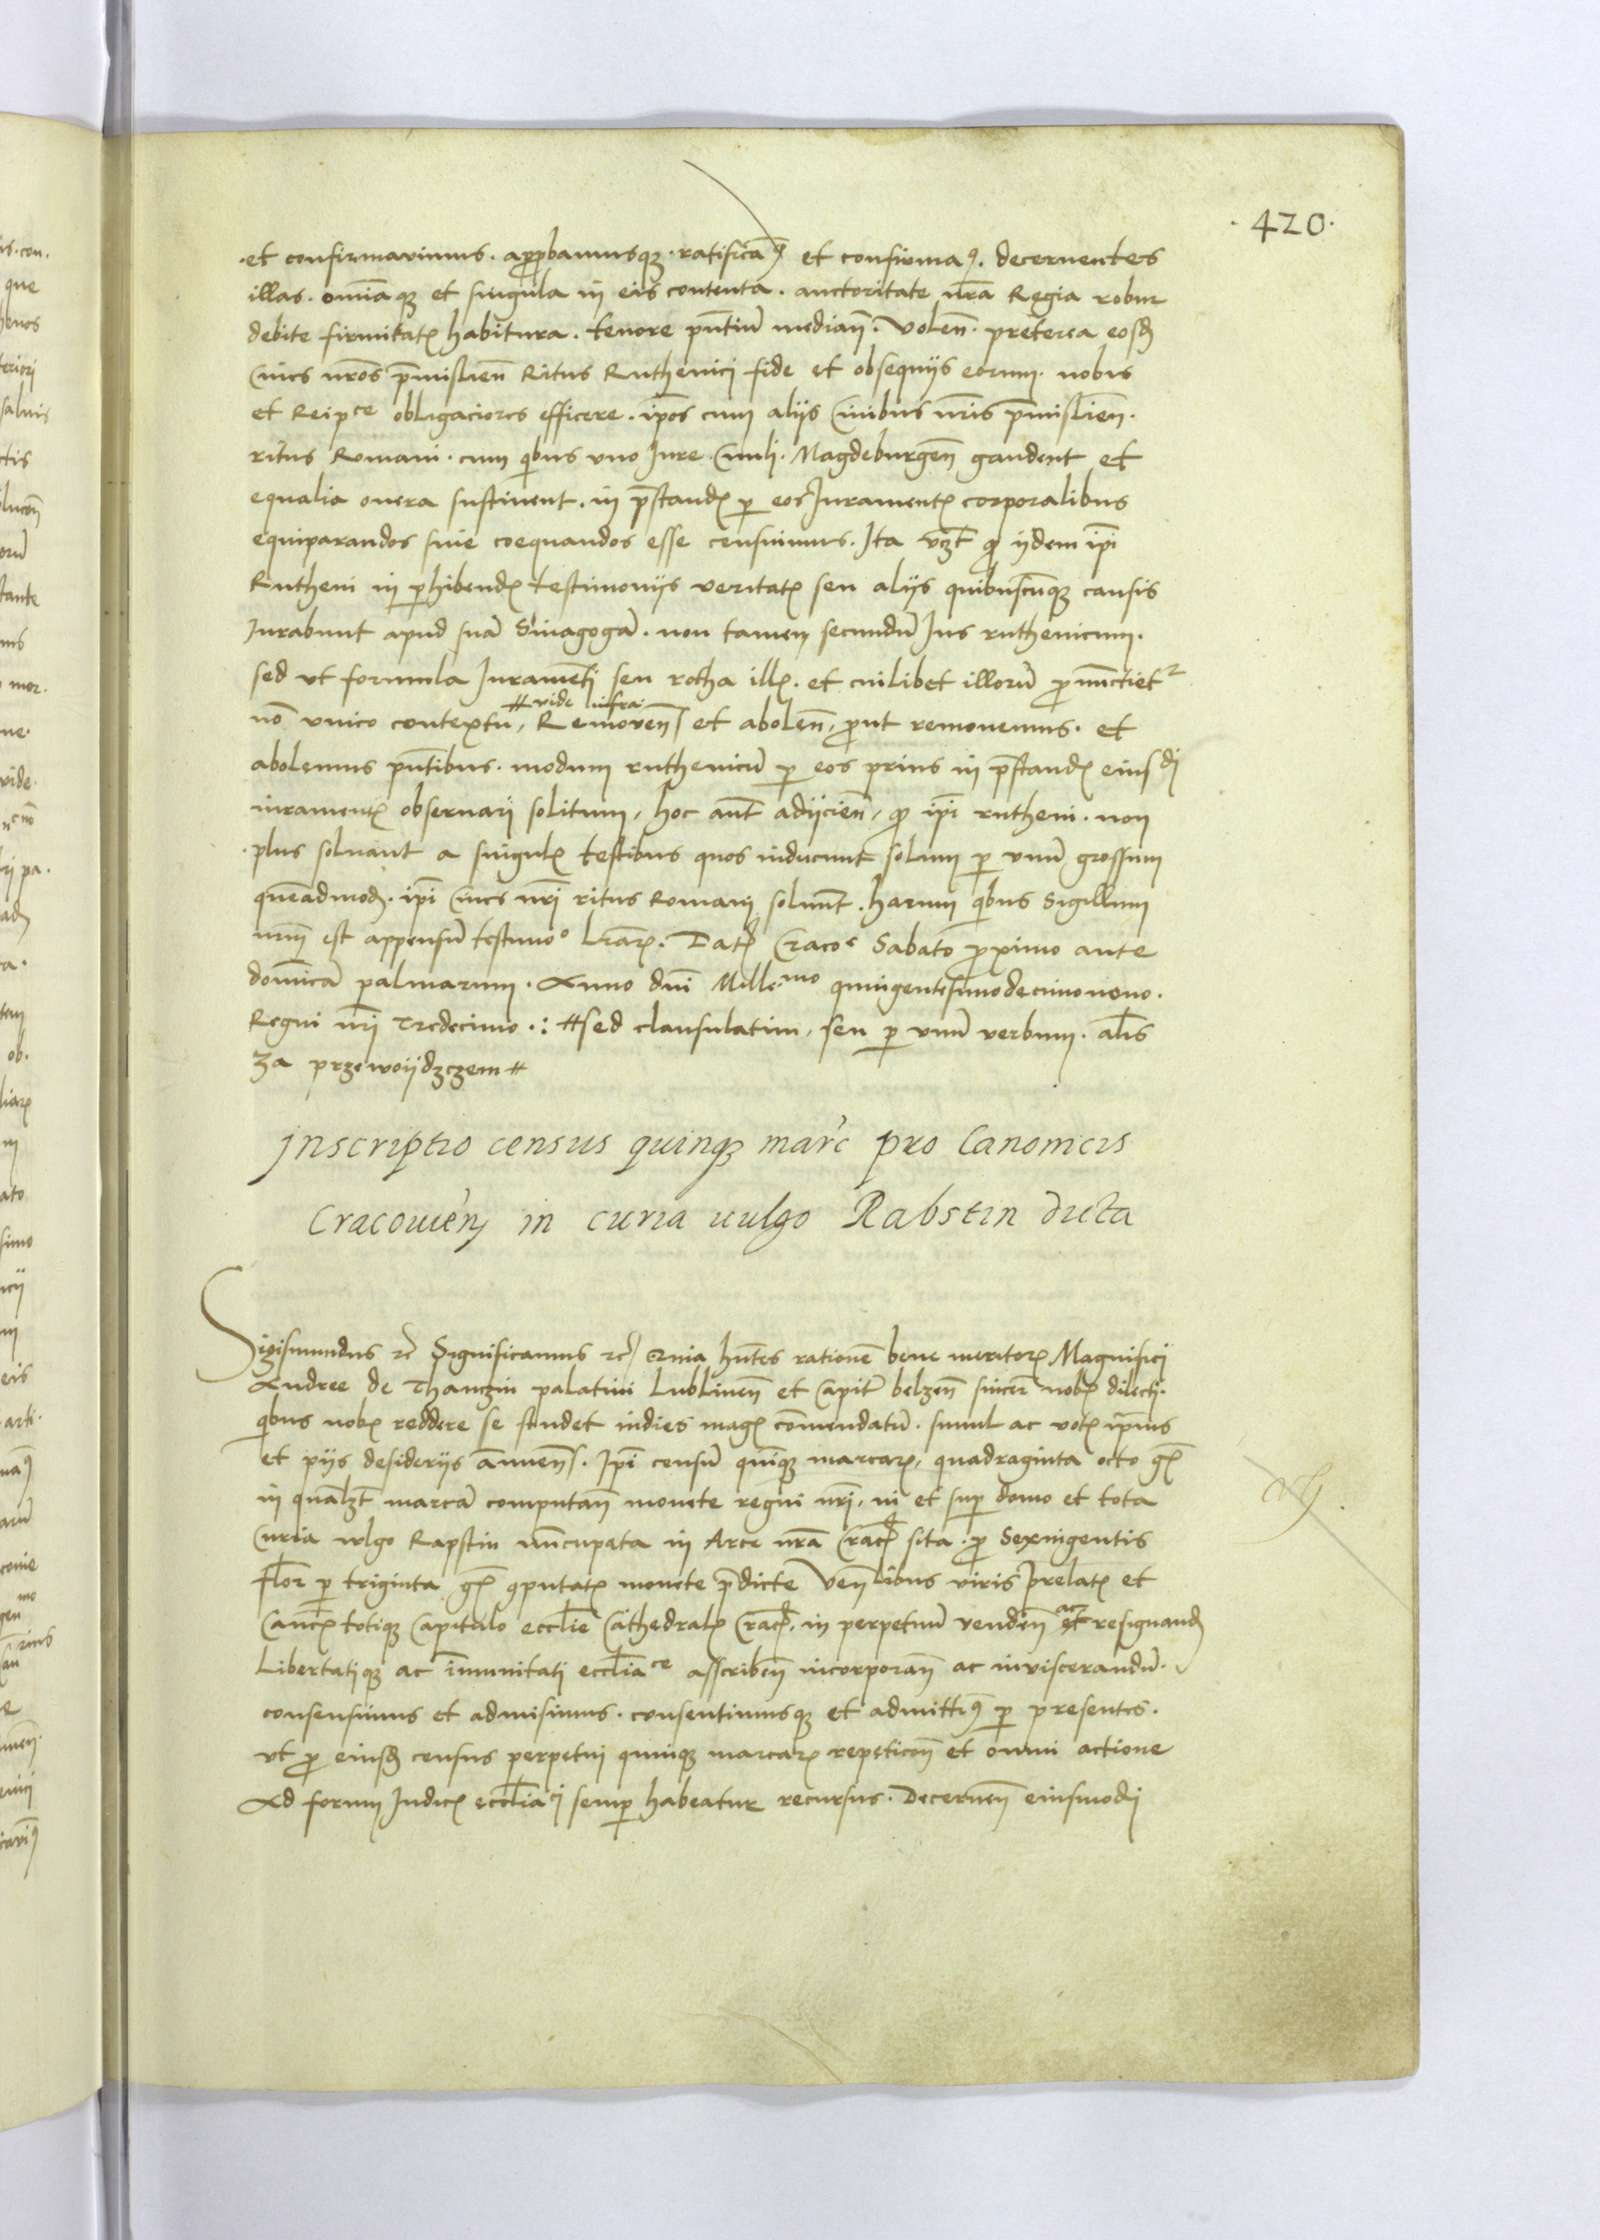 .420.
et confirmavimus. approbamusqz. ratificamꝯ et confirmaꝯ. decernentes
illas. omīaqz et singula in eis contenta. auctoritate nrā Regia robur
debite firmitatꝭ habitura. tenore pntiū mediañ. Voleñ. preterea eosd
Cives nrōs pmisliēn Ritus Ruthenici fide et obsequijs eorum. nobis
et Reipce obligaciores efficere. ipōs cum alijs Civibus nrīs pmisliēn.
ritus Romani. cum qibus uno Iure Civili. Magdeburgeñ gaudent et
equalia onera sustinent. in pstandꝭ p eos Iuramentꝭ corporalibus
equiparandos sive coequandos esse censuimus. Ita vzt q ijdem ipī
Rutheni in phibendꝭ testimonijs veritatꝭ seu alijs quibuscūqz causis
Iurabunt apud suā Sinagogā. non tamen secundū Ius ruthenicum.
sed ut formula Iuramēti seu rotha illꝭ. et cuilibet illorū pnūctiet2
# vide infra.
nō unico contextu, Removeñ et aboleñ, prout removemus. et
abolemus pntibus. modum ruthenicū p eos prius in pstandꝭ eiusdi
iuramentꝭ observari solitum, hoc aūt adijcieñ, q ipī rutheni. non
plus solvant a singulꝭ testibus quos inducunt solum p unū grossum
queādmod. ipī Cives nrī ritus Romani solvūt. harum qibus Sigillum
nrm est appensū testimoo lrāꝝ. Datꝭ Cracoe Sabato proximo ante
domīcā palmarum. Anno dnī Mille.mo quingentesimodecimonono.
Regni nrī Tredecimo .: # sed clausulatim, seu p unū verbum. alīs
za przewoijdzczem #
Inscriptio census quinqz marc pro Canonicis
Cracovieñ in curia vulgo Rabstin dicta
Sigismundus rc Significamus rc Quia hntes rationē bene meritoꝝ Magnifici
Andree de Thanczin palatini Lublineñ et Capitī belzeñ sincer nobꝭ dilecti.
qibus nobꝭ reddere se studet indies magꝭ cōmendatū. simul ac votꝭ ipīus
et pijs desiderijs annueñ. Ipī censū quiqz marcaꝝ, quadraginta octo gꝭ
in qualzt marcā computañ monete regni nrī, in et sup domo et tota
Curia vlgo Rapstin nūcupata in Arce nrā Cracꝭ sita. p Sexingentis
flor p triginta gꝭ qputatꝭ monete pdicte Veñlibus viris Prelatꝭ et
Cancꝭ totiqz Capitulo ecclie Cathedralꝭ Cracꝭ. in perpetuū vendeñ ac et resignand
Libertatiqz ac īmunitati ecclīace asscribeñ incorporañ ac inviscerandū.
consensimus et admisimus. consentimusqz et admittꝯ p presentes.
ut p eiusd census perpetui quinqz marcaꝝ repeticōn et omni actione
Ad forum Iudicꝭ eccliaci semp habeatur recursus. Decerneñ eiusmodi